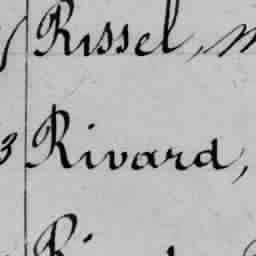 Rissel, m
3 Rivard,